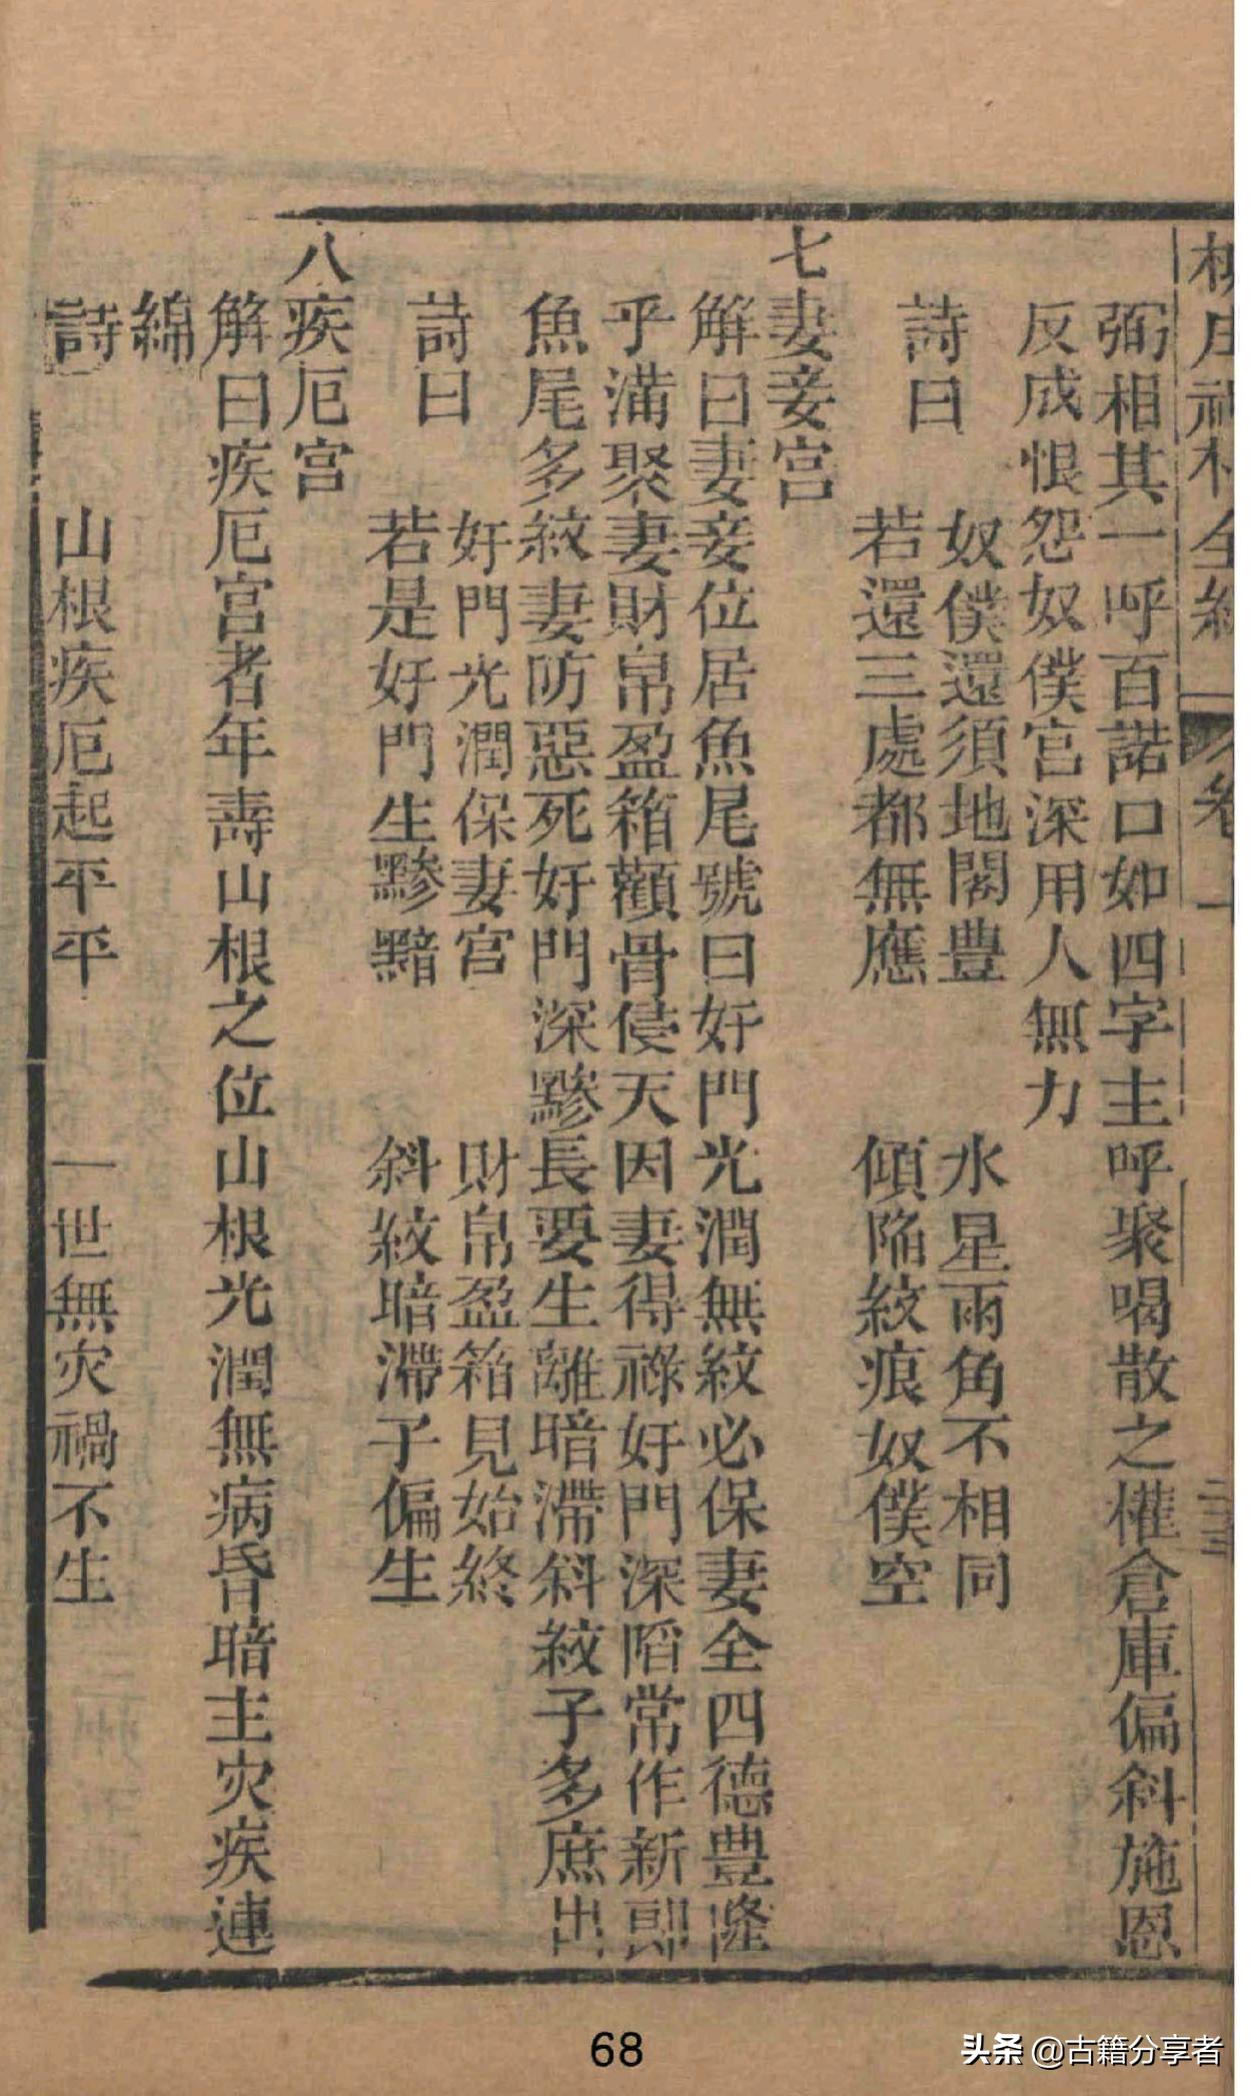 神相全編 卷一 二三
弼相其一呼百諾口如四字主呼聚喝散之權倉庫偏斜施恩
反成恨怨奴僕宮深用人無力
詩曰 奴僕還須地閣豐 水星兩角不相同
若還三處都無應 傾陷紋痕奴僕空
七妻妾宮
解曰妻妾位居魚尾號曰奸門光潤無紋必保妻全四德豐隆
乎滿聚妻財帛盈箱顴骨侵天因妻得祿奸門深陷常作新郎
魚尾多紋妻防惡死奸門深黲長要生離暗滯斜紋子多庶出
詩曰 奸門光潤保妻宮 財帛盈箱見始終
若是奸門生黲黯 斜紋暗滯子偏生
八疾厄宮
解曰疾厄宮者年壽山根之位山根光潤無病昏暗主災疾連
綿
詩 山根疾厄起平平 一世無灾禍不生
68
头条 @古籍分享者